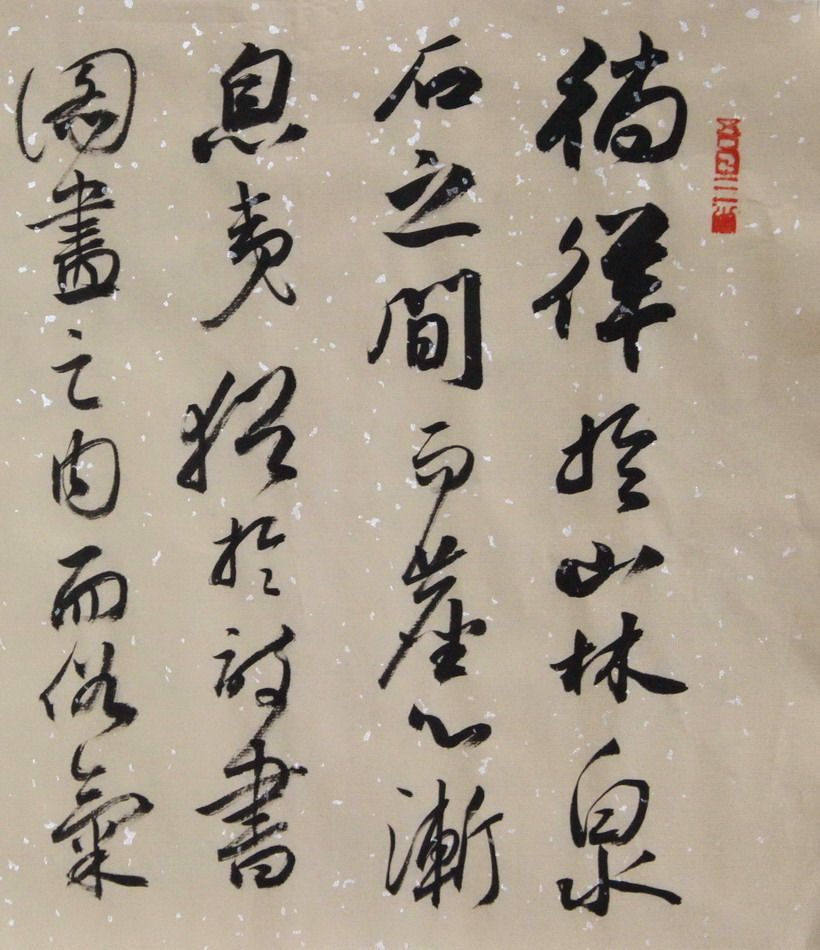 徜徉於山林泉
石之間而塵心漸
息夷猶於詩書
圖畫之内而俗氣